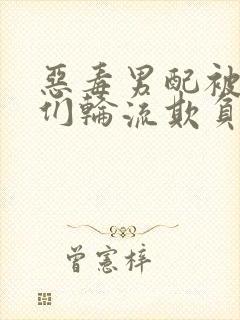 惡毒男配被
们輪流欺負
曾憲梓